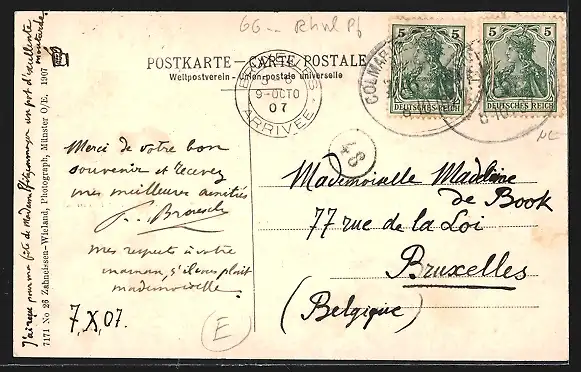 GG
POSTKARTE – CARTE POSTALE
Weltpostverein – Union postale universelle
5 5
DEUTSCHES REICH
5 5
DEUTSCHES REICH
COLMAR
BRUXELLES
9-OCTO
07
ARRIVEE
48
Merci de votre bon
souvenir et recevez
mes meilleures amitiés
mes respects à votre
maman, s'il vous plaît
mademoiselle.
7.X.07.
E
Mademoiselle Madeleine
de Book
77 rue de la Loi
Bruxelles
(Belgique)
moutarde.
J'ai reçu pour ma fête de Madame un pot d'excellente
7171 No 26 Zahndiesen-Wieland, Photograph, Münster O/E. 1907